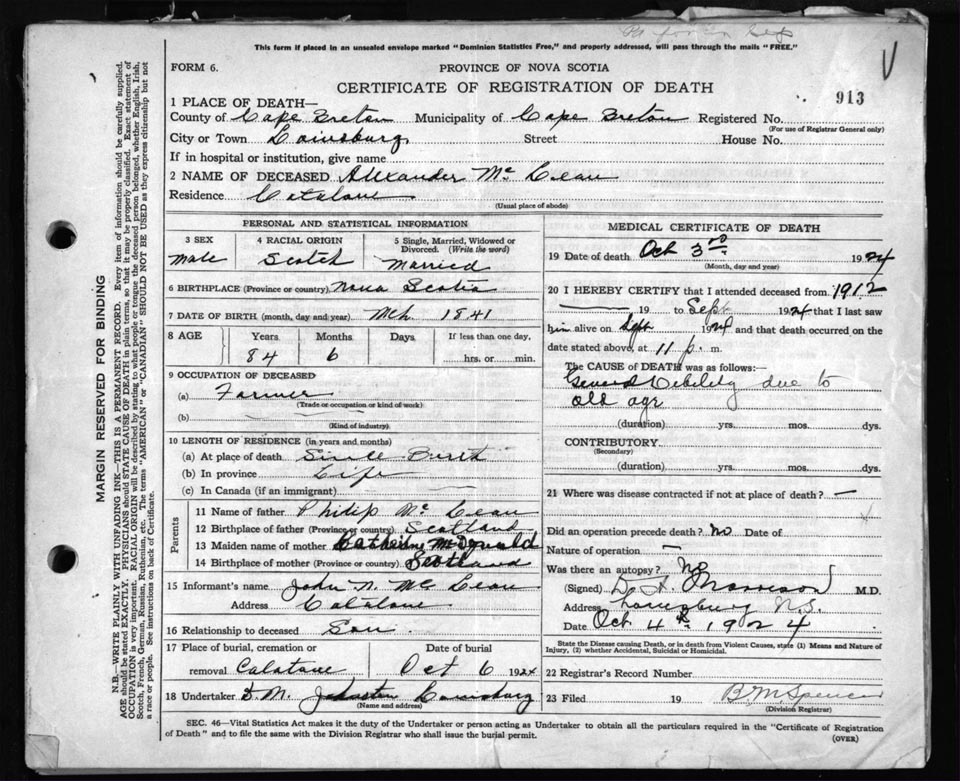 This form if placed in an unsealed envelope marked "Dominion Statistics Free," and properly addressed, will pass through the mails "FREE."
FORM 6.
PROVINCE OF NOVA SCOTIA
CERTIFICATE OF REGISTRATION OF DEATH
913
1 PLACE OF DEATH—
County of Cape Breton Municipality of Cape Breton Registered No.
(For use of Registrar General only)
City or Town Louisburg Street House No.
If in hospital or institution, give name
2 NAME OF DECEASED Alexander Mc Lean
Residence Catalone
(Usual place of abode)
PERSONAL AND STATISTICAL INFORMATION
3 SEX 4 RACIAL ORIGIN 5 Single, Married, Widowed or Divorced. (Write the word)
Male Scotch Married
6 BIRTHPLACE (Province or country) Nova Scotia
7 DATE OF BIRTH (month, day and year) Mch 1841
8 AGE Years Months Days If less than one day,
84 6 hrs. or min.
9 OCCUPATION OF DECEASED
(a) Farmer
(Trade or occupation or kind of work)
(b) —
(Kind of industry)
10 LENGTH OF RESIDENCE (in years and months)
(a) At place of death Since Birth
(b) In province Life
(c) In Canada (if an immigrant) —
Parents
11 Name of father Philip Mc Lean
12 Birthplace of father (Province or country) Scotland
13 Maiden name of mother Catherine McDonald
14 Birthplace of mother (Province or country) Scotland
15 Informant's name John N. Mc Lean
Address Catalone
16 Relationship to deceased Son
17 Place of burial, cremation or Date of burial
removal Catalone Oct 6 1924
18 Undertaker D.M. Johnston Louisburg
(Name and address)
MEDICAL CERTIFICATE OF DEATH
19 Date of death Oct 3rd 1924
(Month, day and year)
20 I HEREBY CERTIFY that I attended deceased from 1912
19 to Sept 1924 that I last saw
him alive on Sept 1924 and that death occurred on
date stated above, at 11 p. m.
The CAUSE of DEATH was as follows:
General Debility due to
old age
(duration) yrs. mos. dys.
CONTRIBUTORY
(Secondary)
(duration) yrs. mos. dys.
21 Where was disease contracted if not at place of death? —
Did an operation precede death? No Date of
Nature of operation —
Was there an autopsy? No
(Signed) M.D.
Address Louisburg N.S.
Date Oct 4th 1924
State the Disease causing Death, or in death from Violent Causes, state (1) Means and Nature of
Injury, (2) whether Accidental, Suicidal or Homicidal.
22 Registrar's Record Number
23 Filed 19 B M Spencer
(Division Registrar)
SEC. 46—Vital Statistics Act makes it the duty of the Undertaker or person acting as Undertaker to obtain all the particulars required in the "Certificate of Registration
of Death" and to file the same with the Division Registrar who shall issue the burial permit.
(OVER)
MARGIN RESERVED FOR BINDING
N.B.—WRITE PLAINLY WITH UNFADING INK—THIS IS A PERMANENT RECORD. Every item of information should be carefully supplied.
AGE should be stated EXACTLY. PHYSICIANS should STATE CAUSE OF DEATH in plain terms, so that it may be properly classified. Exact statement of
OCCUPATION is very important. RACIAL ORIGIN will be described by stating to what people or tongue the deceased person belonged, whether English, Irish,
Scotch, French, German, Russian, Ruthenian, etc. The terms "AMERICAN" or "CANADIAN" SHOULD NOT BE USED as they express citizenship but not
a race or people. See instructions on back of Certificate.